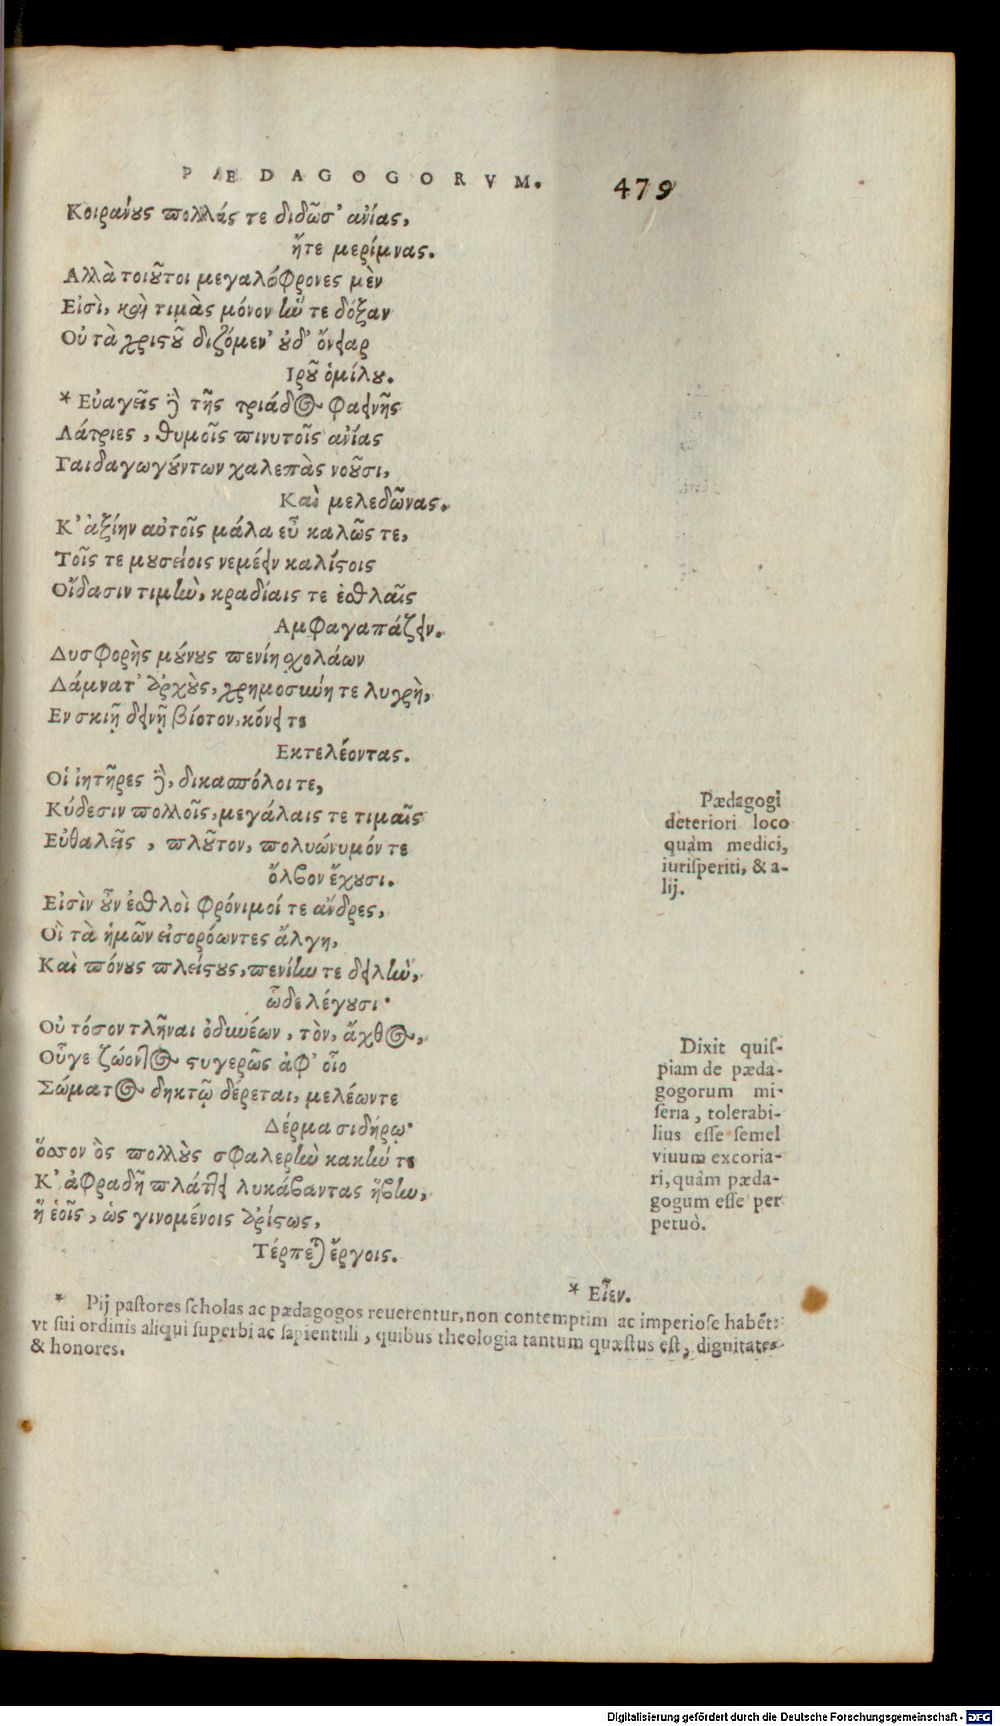 PÆDAGOGORVM. 479
Κοιράνους πολλάς τε διδῶσ' ἀνίας,
ἤτε μερίμνας.
Αλλὰ τοιοῦτοι μεγαλόφρονες μὲν
Εἰσὶ, καὶ τιμὰς μόνον ἠΰ τε δόξαν
Οὐ τὰ χριστοῦ διζόμεν' οὐδ' ὄνειαρ
Ιροῦ ὁμίλου.
* Εὐαγεῖς δὲ τῆς τριάδος φαεινῆς
Λάτριες, θυμοῖς πινυτοῖς ἀνίας
Γαιδαγωγούντων χαλεπὰς νοοῦσι,
Καὶ μελεδῶνας.
Κ' ἀξίην αὐτοῖς μάλα εὖ καλῶς τε,
Τοῖς τε μουσείοις νεμέειν καλίστοις
Οἴδασιν τιμὴν, κραδίαις τε ἐσθλαῖς
Αμφαγαπάζειν.
Δυσφορὴς μούνους πενίη σχολάων
Δάμνατ' ἀρχοὺς, χρημοσύνη τε λυγρὴ,
Εν σκιῇ δεινῇ βίοτον, κόνει τε
Εκτελέοντας.
Οἱ ἰητῆρες δὲ, δικασπόλοι τε,
Κύδεσιν πολλοῖς, μεγάλαις τε τιμαῖς
Εὐθαλεῖς, πλοῦτον, πολυώνυμόν τε
ὄλβον ἔχουσι.
Pædagogi
deteriori loco
quàm medici,
iurisperiti, & a-
lij.
Εἰσὶν οὖν ἐσθλοὶ φρόνιμοί τε ἄνδρες,
Οἳ τὰ ἡμῶν εἰσορόωντες ἄλγη,
Καὶ πόνους πλείστους, πενίην τε δειλὴν,
ὧδε λέγουσι·
Οὐ τόσον τλῆναι ὀδυνέων, τὸν, ἄχθος,
Οὗγε ζώοντος στυγερῶς ἀφ' οἷο
Σώματος δηκτῷ δέρεται, μελέωντε
Δέρμα σιδήρῳ·
ὅσσον ὃς πολλοὺς σφαλερὴν κακήν τε
Κ' ἀφραδῆ πλάττει λυκάβαντας ἥβην,
ἢ ἑοῖς, ὡς γινομένοις ἀρίστως,
Τέρπεται ἔργοις.
Dixit quis-
piam de pæda-
gogorum mi-
seria, tolerabi-
lius esse semel
viuum excoria-
ri, quàm pæda-
gogum esse per
petuò.
* Εἶεν.
* Pij pastores scholas ac pædagogos reuerentur, non contemptim ac imperiose habẽt:
vt sui ordinis aliqui superbi ac sapientuli, quibus theologia tantum quæstus est, dignitates
& honores.
Digitalisierung gefördert durch die Deutsche Forschungsgemeinschaft - DFG